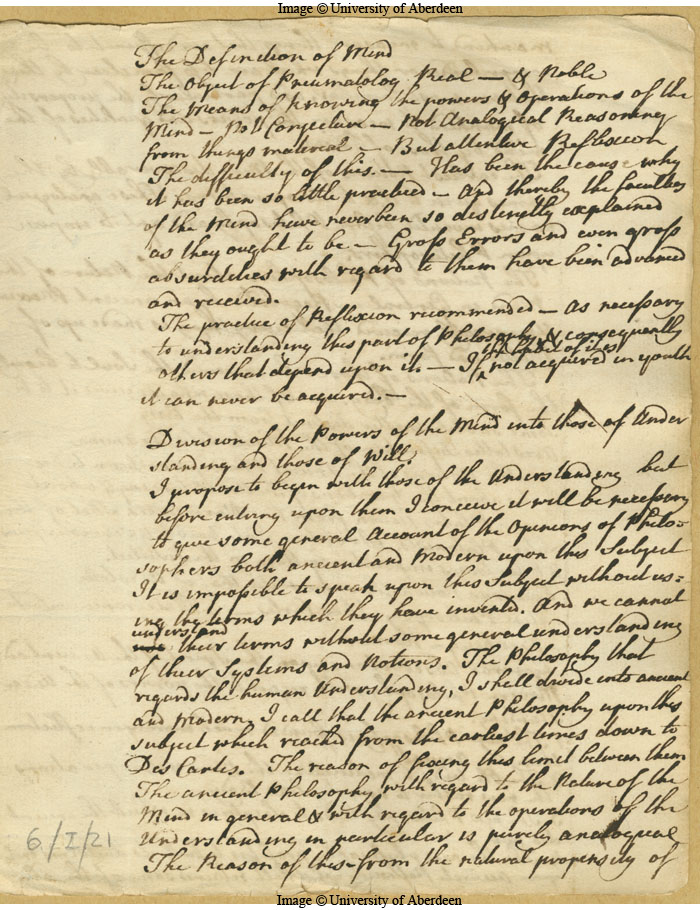 Image © University of Aberdeen
The Definition of Mind
The Object of Pneumatology Real — & Noble
The Means of knowing the powers & Operations of the
Mind — Not Conjecture — Not Analogical Reasoning
from things material — But attentive Reflexion
The difficulty of this. — Has been the cause why
it has been so little practised — and thereby the faculties
of the Mind have never been so distinctly explained
as they ought to be — Gross Errors and even gross
absurdities with regard to them have been advanced
and received.
The practice of Reflexion recommended — as necessary
to understanding this part of Philosophy & consequently
the habit of it is
others that depend upon it. — If not acquired in youth
it can never be acquired. —
Division of the Powers of the Mind into those of Under
standing and those of Will.
I propose to begin with those of the Understanding but
before entring upon them I conceive it will be necessary
to give some general Account of the Opinions of Philo-
sophers both ancient and Modern upon this Subject
It is impossible to speak upon this Subject without us=
ing the terms which they have invented. And we cannot
understand
their terms without some general understanding
of their Systems and Notions. The Philosophy that
regards the human Understanding, I shall divide into ancient
and Modern, I call that the ancient Philosophy upon this
subject which reached from the earliest times down to
Des Cartes. The reason of fixing this limit between them
The ancient Philosophy with regard to the Nature of the
Mind in general & with regard to the operations of the
Understanding in particular is purely analogical
The Reason of this from the natural propensity of
6/I/21
Image © University of Aberdeen